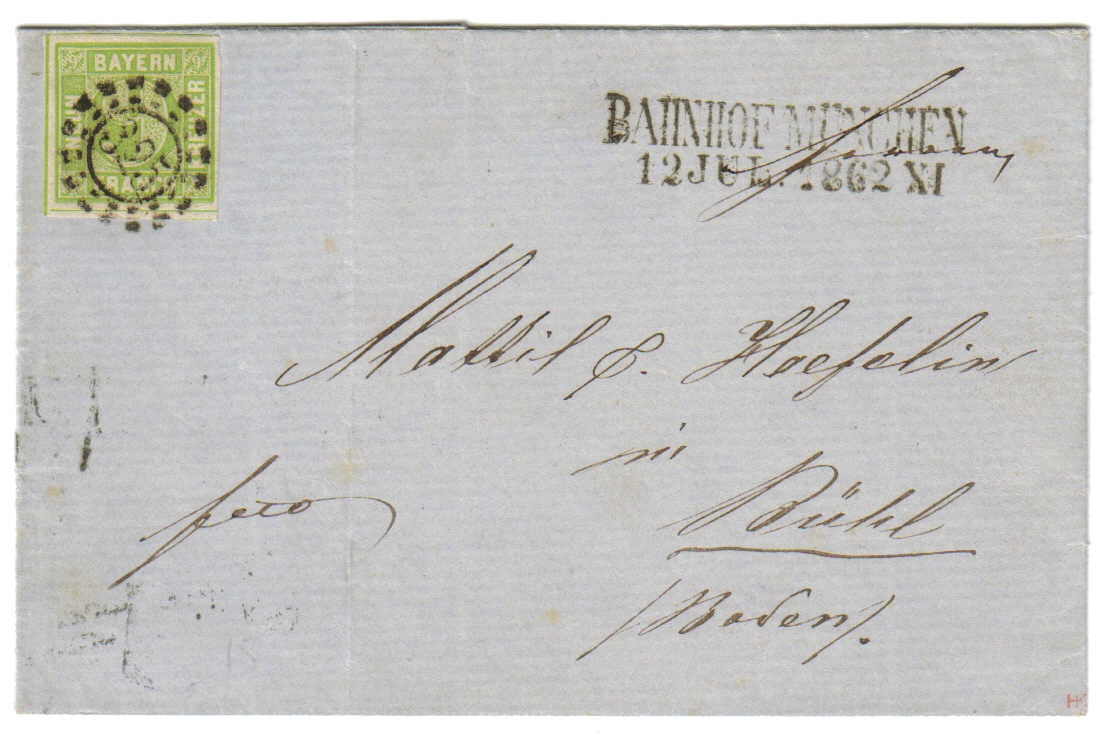 BAYERN
NEUN
KREUZER
FRANCO
9 9
BAHNHOF MÜNCHEN
12 JUL. 1862 XI
Mattil & Haefelin
in
Bühl
/Baden/.
fco